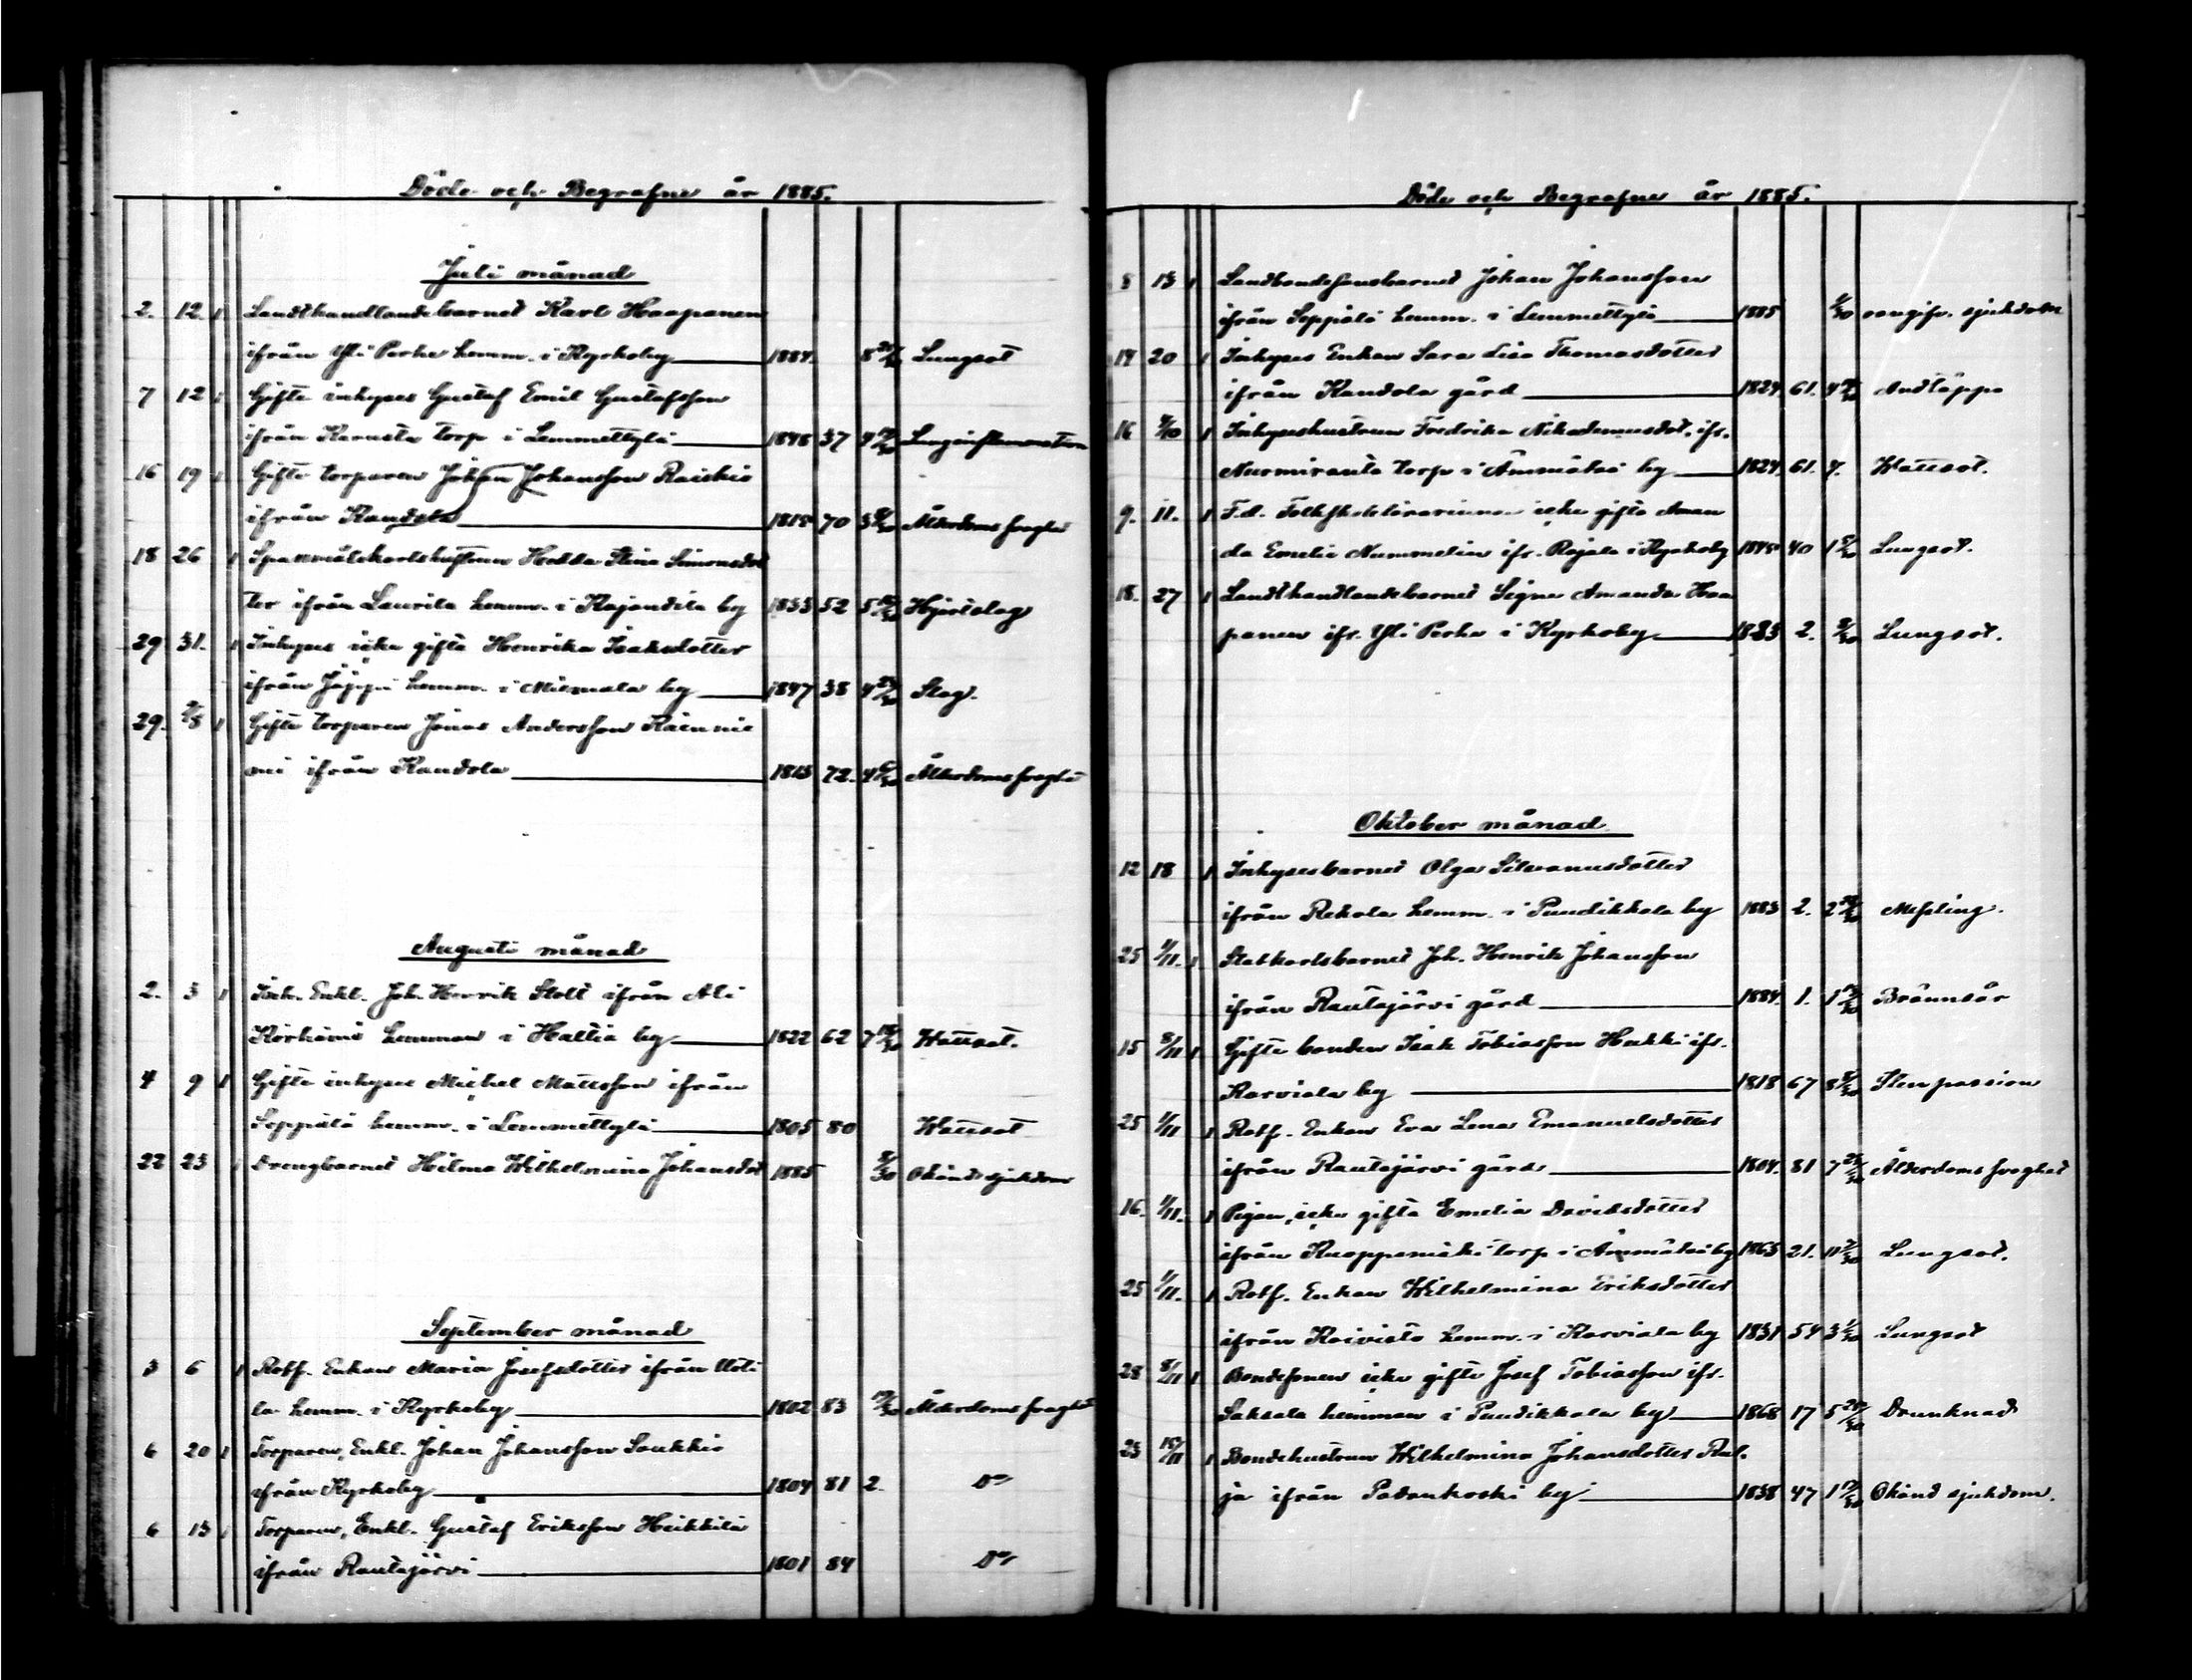 Döde och Begrafne år 1885.
Juli månad
2. 12. 1 Landthandlandebarnet Karl Haapanen
ifrån Yli Perhe hemm. i Kyrkoby 1884. 8 Lungsot
7 12 1 Gifte inhyses Gustaf Emil Gustafsson
ifrån torp i Lemmettylä 1848 37 4 Lunginflammation
16 19 1 Gifte torparen Johan Johansson Raiskio
ifrån Kandola 1815 70 3 Ålderdomssvaghet
18 26 1 Spanmålskarlshustrun Hedda Stina Simonsdot
ter ifrån Laurila hemm. i by 1833 52 5 Hjertslag
29 31. 1 Inhyses icke gifta Henrika Isaksdotter
ifrån Jäppi hemm. i by 1847 38 4 Slag.
29. 2/8 1 Gifte torparen Jonas Andersson Kainnie
mi ifrån Kandola 1813 72. 4 Ålderdomssvaghet
Augusti månad
2. 3 1 Inh. Enkl. Joh. Henrik Stolt ifrån Ali
hemman i Haltia by 1822 62 7 Wattsot.
4 9 1 Gifte inhyses Michel Mattsson ifrån
Seppälä hemm. i Lemmettylä 1805 80 Wattsot
22 23 1 Drengbarnet Hilma Wilhelmina Johansdot 1885 Okänd sjukdom
September månad
3 6 1 Rotf. Enkan Maria Josefsdotter ifrån Uoti
la hemm. i Kyrkoby 1802 83 Ålderdomssvaghet
6 20 1 Torparen, Enkl. Johan Johansson Soukkio
ifrån Kyrkoby 1804 81 2. Do
6 13 1 Torparen, Enkl. Gustaf Eriksson Heikkilä
ifrån Rautajärvi 1801 84 Do
Döde och Begrafne år 1885.
8 13 1 Landbondesonsbarnet Johan Johansson
ifrån Seppälä hemm. i Lemmettylä 1885 oangifv. sjukdom
14 20 1 Inhyses Enkan Sara Lisa Thomasdotter
ifrån Kandola gård 1824 61. 4 Andtäppa
16 4/10 1 Inhyseshustrun Fredrika Nikodemusdot. ifr.
Nurmiranta torp i Ämmätsä by 1824 61. 4. Wattsot.
9. 11. 1 F.d. Folkskolelärarinnan icke gifta Aman
da Emelie Nummelin ifr. Rajala i Kyrkoby 1845 40 1 Lungsot.
18. 27 1 Landthandlandebarnet Signe Amanda Haa
panen ifr. Yli Perhe i Kyrkoby 1883 2. Lungsot.
Oktober månad
12 18 1 Inhysesbarnet Olga Silvanusdotter
ifrån Rekola hemm. i Puudikkala by 1883 2. 2 Messling.
25 1/11. 1 Statkarlsbarnet Joh. Henrik Johansson
ifrån Rautajärvi gård 1884. 1. 1 Brännsår
15 8/11 1 Gifte bonden Isak Tobiasson Heikki ifr.
Karviala by 1818 67 8 Stenpassion
25 1/11 1 Rotf. Enkan Eva Lena Emanuelsdotter
ifrån Rautajärvi gård 1804. 81 7 Ålderdomssvaghet
16. 1/11. 1 Pigan, icke gifta Emelia Davidsdotter
ifrån Knappamäki torp i Ämmätsä by 1863 21. 11 Lungsot.
25 1/11. 1 Rotf. Enkan Wilhelmina Eriksdotter
ifrån Koivisto hemm. i Karviala by 1831 54 3 Lungsot
28 8/11 1 Bondesonen icke gifte Josef Tobiasson ifr.
Saksala hemman i Puudikkala by 1868 17 5 Drunknad
23 15/11 1 Bondehustrun Wilhelmina Johansdotter Rul.
ja ifrån Padankoski by 1838 47 1 Okänd sjukdom.